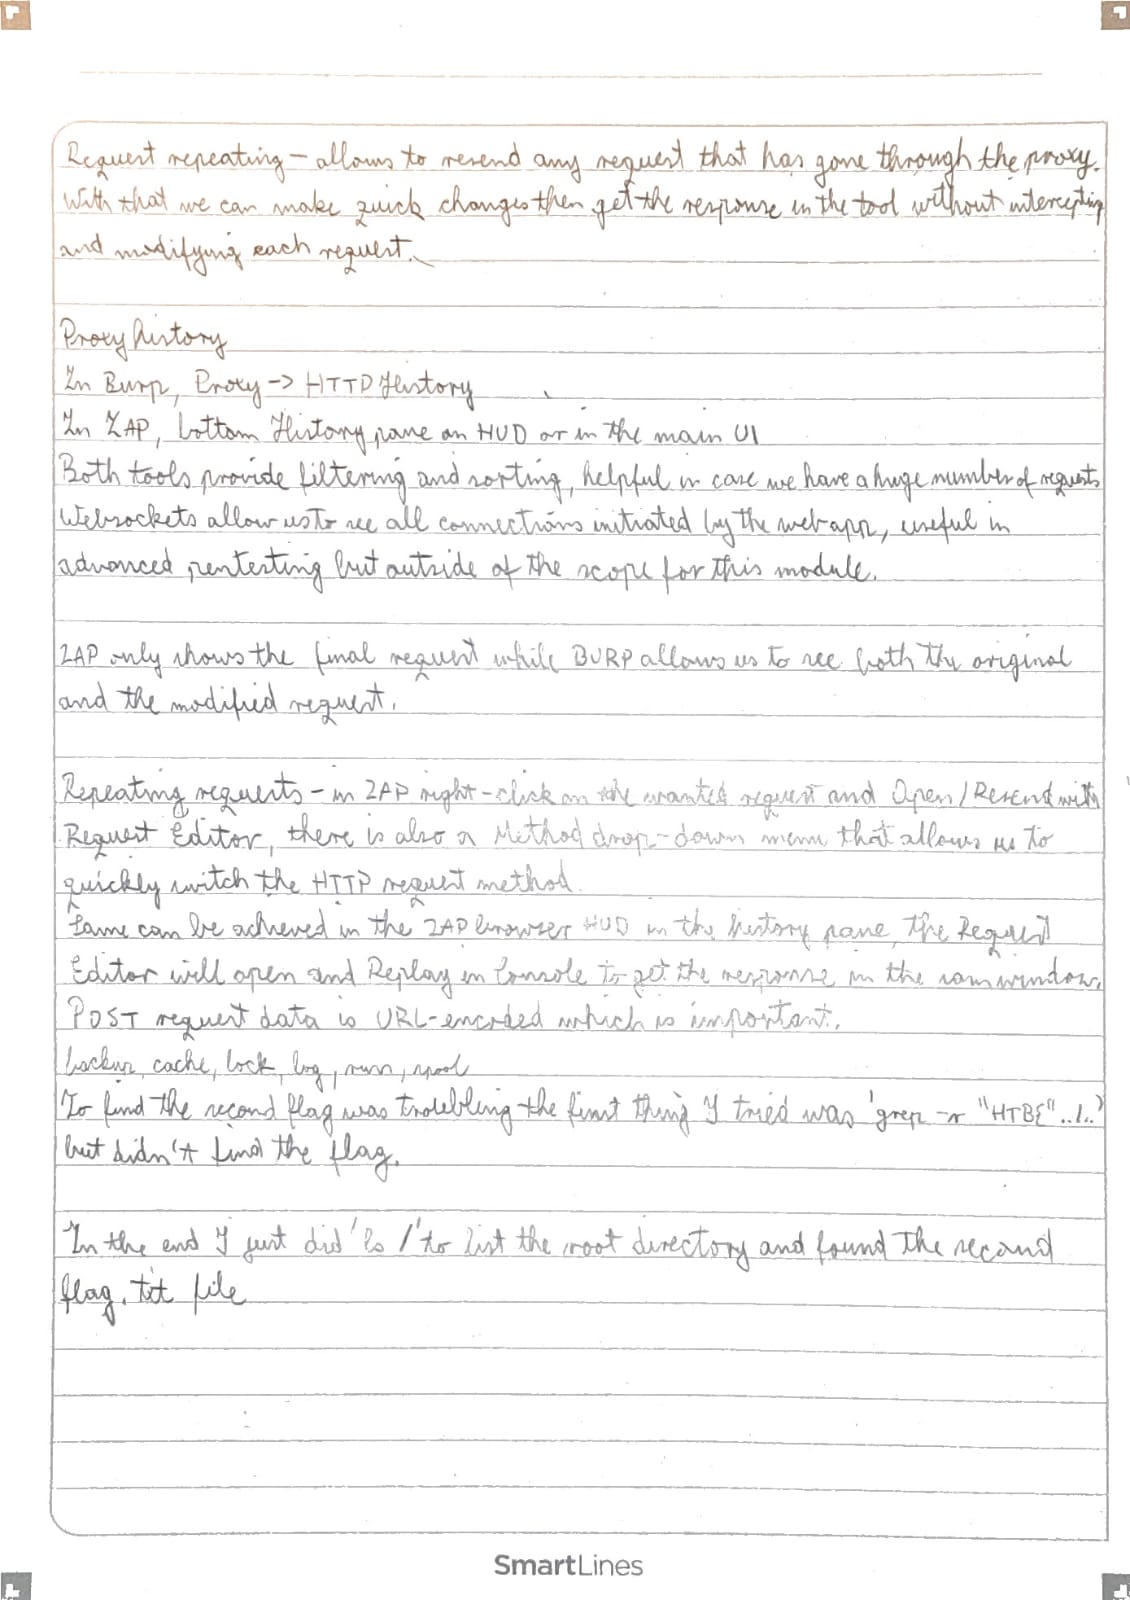 Request repeating – allows to resend any request that has gone through the proxy.
With that we can make quick changes then get the response in the tool without intercepting
and modifying each request.
Proxy history
In Burp, Proxy -> HTTP History
In ZAP, bottom History pane on HUD or in the main UI
Both tools provide filtering and sorting, helpful in case we have a huge number of requests
Websockets allow us to see all connections initiated by the web app, useful in
advanced pentesting but outside of the scope for this module.
ZAP only shows the final request while BURP allows us to see both the original
and the modified request.
Repeating requests – in ZAP right-click on the wanted request and Open/Resend with
Request Editor, there is also a Method drop-down menu that allows us to
quickly switch the HTTP request method.
Same can be achieved in the ZAP browser HUD in the history pane, the Request
Editor will open and Replay in Console to get the response in the same window.
POST request data is URL-encoded which is important.
backup, cache, lock, log, run, spool
To find the second flag was troubling the first thing I tried was 'grep -r "HTB{" ../..'
but didn't find the flag.
In the end I just did 'ls /' to list the root directory and found the second
flag.txt file
SmartLines